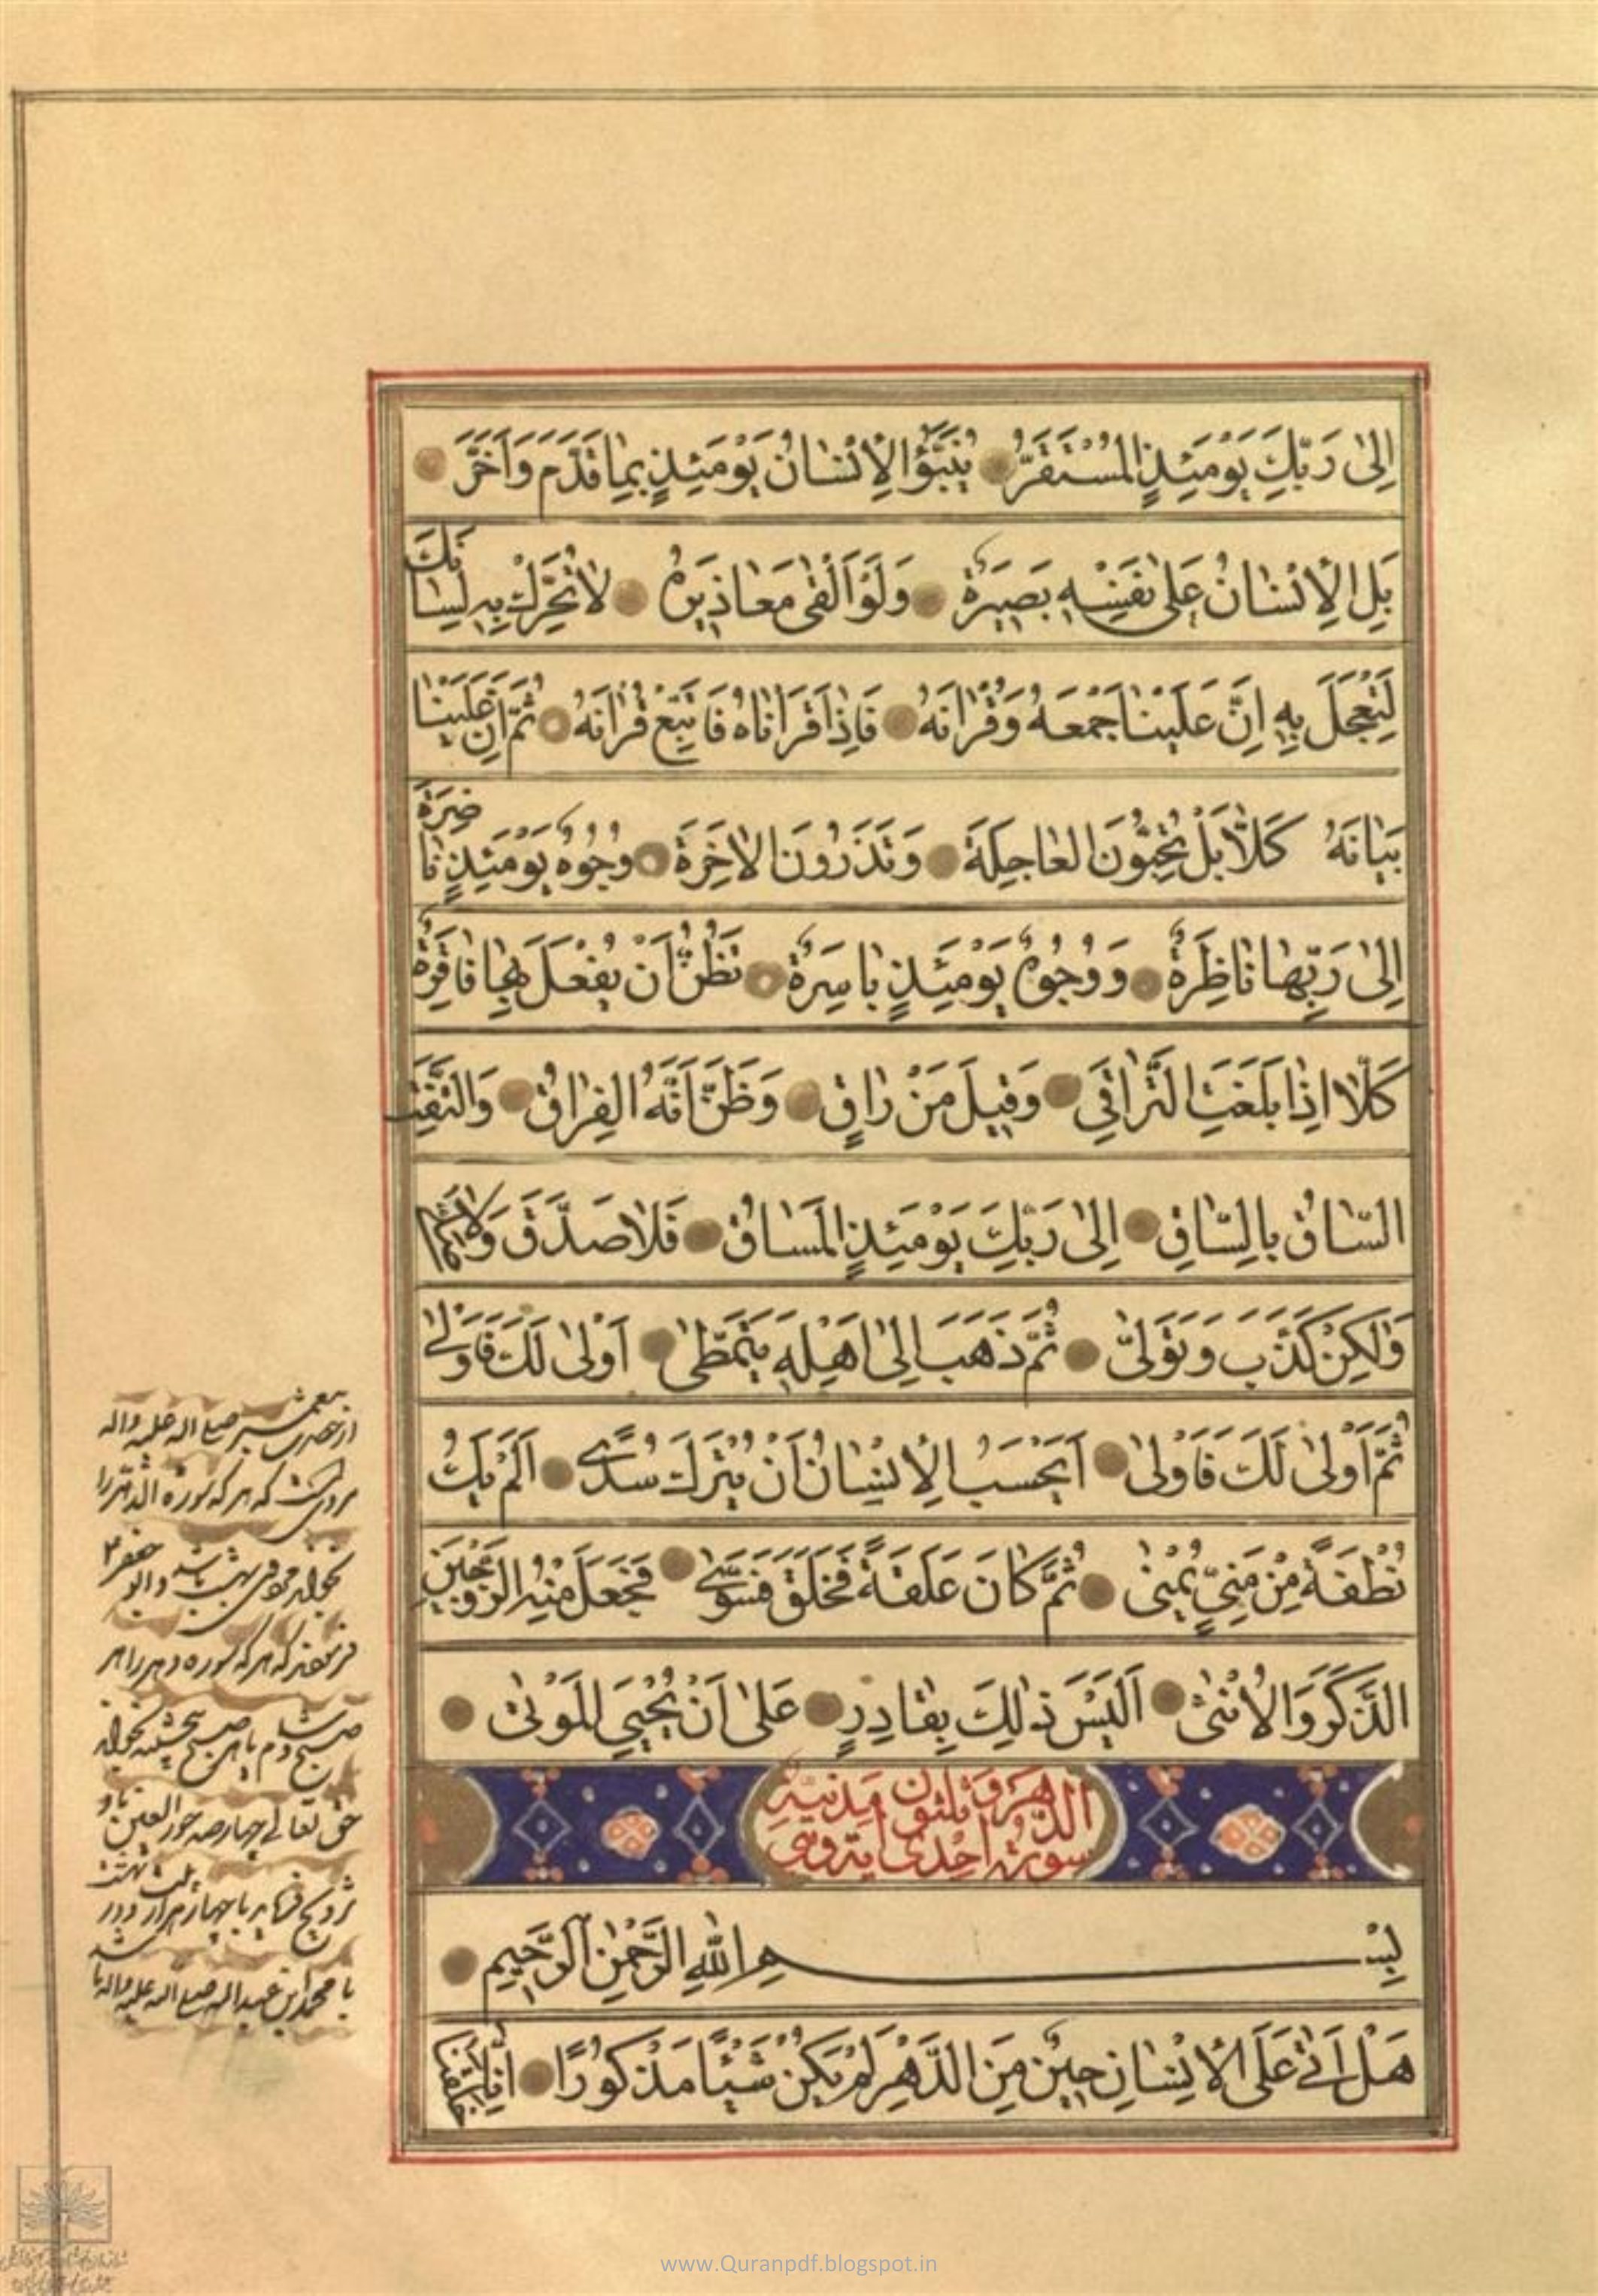 اِلىٰ رَبِّكَ يَوْمَئِذٍ الْمُسْتَقَرُّ يُنَبَّؤُا الْاِنْسٰانُ يَوْمَئِذٍ بِمٰا قَدَّمَ وَاَخَّرَ
بَلِ الْاِنْسٰانُ عَلىٰ نَفْسِهٖ بَصٖيرَةٌ وَلَوْ اَلْقٰى مَعٰاذٖيرَهُ لٰا تُحَرِّكْ بِهٖ لِسٰانَكَ
لِتَعْجَلَ بِهٖ اِنَّ عَلَيْنٰا جَمْعَهُ وَقُرْاٰنَهُ فَاِذٰا قَرَاْنٰاهُ فَاتَّبِعْ قُرْاٰنَهُ ثُمَّ اِنَّ عَلَيْنٰا
بَيٰانَهُ كَلّٰا بَلْ تُحِبُّونَ الْعٰاجِلَةَ وَتَذَرُونَ الْاٰخِرَةَ وُجُوهٌ يَوْمَئِذٍ نٰاضِرَةٌ
اِلىٰ رَبِّهٰا نٰاظِرَةٌ وَوُجُوهٌ يَوْمَئِذٍ بٰاسِرَةٌ تَظُنُّ اَنْ يُفْعَلَ بِهٰا فٰاقِرَةٌ
كَلّٰا اِذٰا بَلَغَتِ التَّرٰاقِيَ وَقٖيلَ مَنْ رٰاقٍ وَظَنَّ اَنَّهُ الْفِرٰاقُ وَالْتَفَّتِ
السّٰاقُ بِالسّٰاقِ اِلىٰ رَبِّكَ يَوْمَئِذٍ الْمَسٰاقُ فَلٰا صَدَّقَ وَلٰا صَلّٰى
وَلٰكِنْ كَذَّبَ وَتَوَلّٰى ثُمَّ ذَهَبَ اِلىٰ اَهْلِهٖ يَتَمَطّٰى اَوْلىٰ لَكَ فَاَوْلىٰ
ثُمَّ اَوْلىٰ لَكَ فَاَوْلىٰ اَيَحْسَبُ الْاِنْسٰانُ اَنْ يُتْرَكَ سُدًى اَلَمْ يَكُ
نُطْفَةً مِنْ مَنِيٍّ يُمْنٰى ثُمَّ كٰانَ عَلَقَةً فَخَلَقَ فَسَوّٰى فَجَعَلَ مِنْهُ الزَّوْجَيْنِ
الذَّكَرَ وَالْاُنْثٰى اَلَيْسَ ذٰلِكَ بِقٰادِرٍ عَلىٰ اَنْ يُحْيِيَ الْمَوْتٰى
سورة الدَّهر احدى وثلثون اية مدنية
بِسْمِ اللّٰهِ الرَّحْمٰنِ الرَّحٖيمِ
هَلْ اَتٰى عَلَى الْاِنْسٰانِ حٖينٌ مِنَ الدَّهْرِ لَمْ يَكُنْ شَيْئًا مَذْكُورًا اِنّٰا خَلَقْنَا
از حضرت پیغمبر صلی اله علیه واله
مرویست که هر که سوره الدهر را
بخواند
فرمودند که هر که سوره دهر را هر
صبح پنجشنبه بخواند
حق تعالی چهارصد حورالعین باو
تزویج فرماید با چهار هزار
با محمد ابن عبداله صلی اله علیه واله
www.Quranpdf.blogspot.in